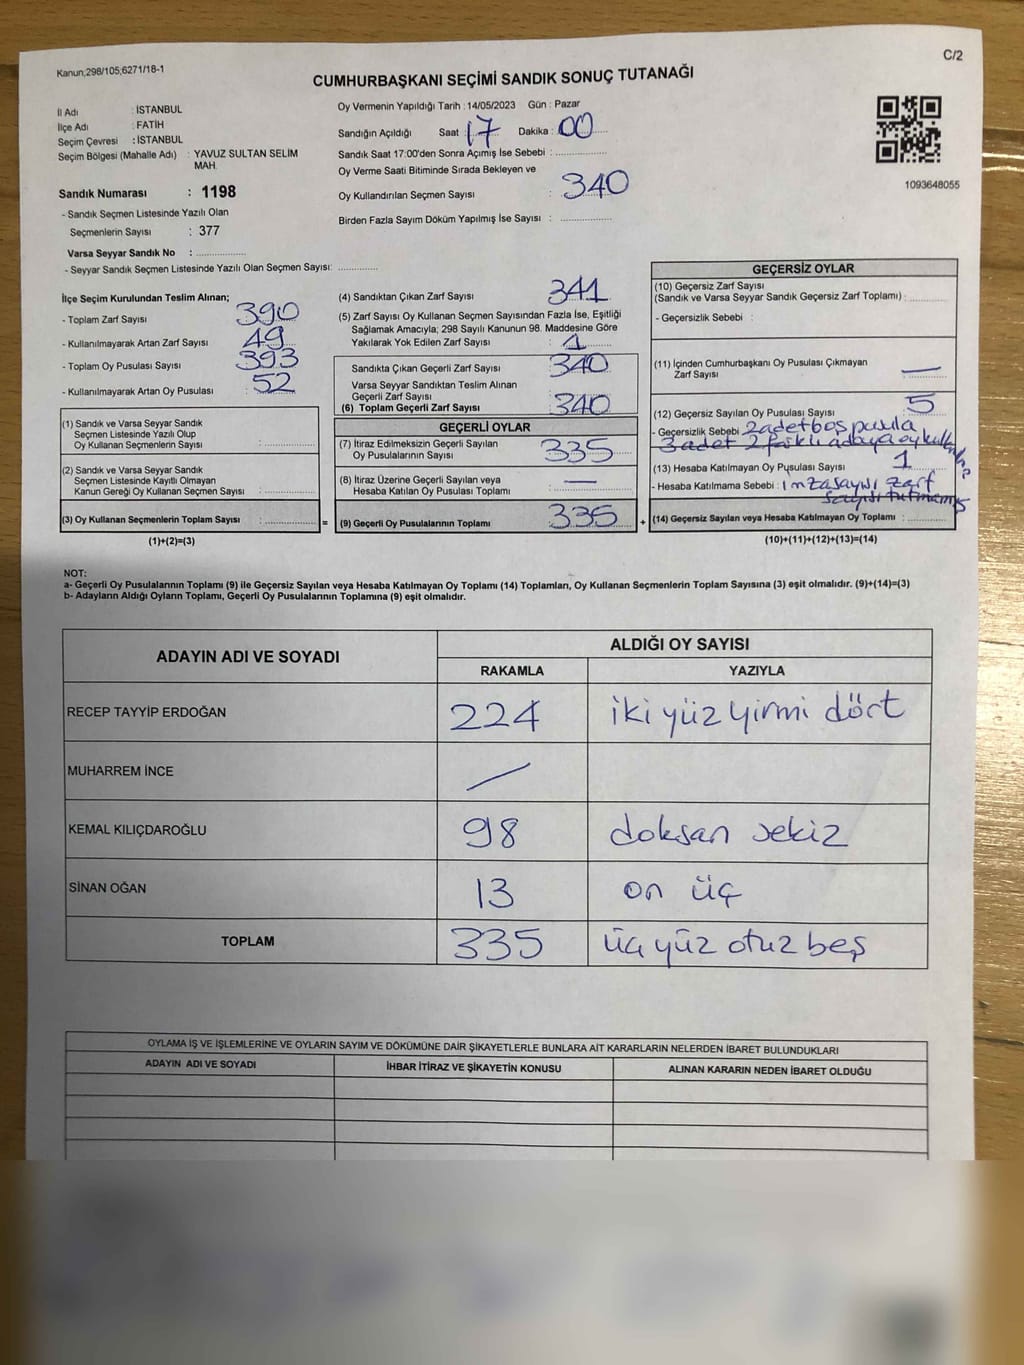 Kanun;298/105;6271/18-1
C/2
CUMHURBAŞKANI SEÇİMİ SANDIK SONUÇ TUTANAĞI
İl Adı : İSTANBUL
İlçe Adı : FATİH
Seçim Çevresi : İSTANBUL
Seçim Bölgesi (Mahalle Adı) : YAVUZ SULTAN SELİM
MAH.
Sandık Numarası : 1198
- Sandık Seçmen Listesinde Yazılı Olan
Seçmenlerin Sayısı : 377
Varsa Seyyar Sandık No :
- Seyyar Sandık Seçmen Listesinde Yazılı Olan Seçmen Sayısı:
Oy Vermenin Yapıldığı Tarih : 14/05/2023 Gün : Pazar
Sandığın Açıldığı Saat : 17 Dakika : 00
Sandık Saat 17:00'den Sonra Açımış İse Sebebi :
Oy Verme Saati Bitiminde Sırada Bekleyen ve
Oy Kullandırılan Seçmen Sayısı : 340
Birden Fazla Sayım Döküm Yapılmış İse Sayısı :
1093648055
İlçe Seçim Kurulundan Teslim Alınan;
- Toplam Zarf Sayısı : 390
- Kullanılmayarak Artan Zarf Sayısı : 49
- Toplam Oy Pusulası Sayısı : 393
- Kullanılmayarak Artan Oy Pusulası : 52
(1) Sandık ve Varsa Seyyar Sandık
Seçmen Listesinde Yazılı Olup
Oy Kullanan Seçmenlerin Sayısı :
(2) Sandık ve Varsa Seyyar Sandık
Seçmen Listesinde Kayıtlı Olmayan
Kanun Gereği Oy Kullanan Seçmen Sayısı :
(3) Oy Kullanan Seçmenlerin Toplam Sayısı : =
(1)+(2)=(3)
(4) Sandıktan Çıkan Zarf Sayısı : 341
(5) Zarf Sayısı Oy Kullanan Seçmen Sayısından Fazla İse, Eşitliği
Sağlamak Amacıyla; 298 Sayılı Kanunun 98. Maddesine Göre
Yakılarak Yok Edilen Zarf Sayısı : 1
Sandıkta Çıkan Geçerli Zarf Sayısı : 340
Varsa Seyyar Sandıktan Teslim Alınan
Geçerli Zarf Sayısı :
(6) Toplam Geçerli Zarf Sayısı : 340
GEÇERLİ OYLAR
(7) İtiraz Edilmeksizin Geçerli Sayılan
Oy Pusulalarının Sayısı : 335
(8) İtiraz Üzerine Geçerli Sayılan veya
Hesaba Katılan Oy Pusulası Toplamı : —
(9) Geçerli Oy Pusulalarının Toplamı : 335 +
GEÇERSİZ OYLAR
(10) Geçersiz Zarf Sayısı
(Sandık ve Varsa Seyyar Sandık Geçersiz Zarf Toplamı) :
- Geçersizlik Sebebi :
(11) İçinden Cumhurbaşkanı Oy Pusulası Çıkmayan
Zarf Sayısı : —
(12) Geçersiz Sayılan Oy Pusulası Sayısı : 5
- Geçersizlik Sebebi : 2 adet boş pusula
3 adet 2 farklı adaya oy
(13) Hesaba Katılmayan Oy Pusulası Sayısı : 1
- Hesaba Katılmama Sebebi : imza sayısı zarf
sayısı tutmamış
(14) Geçersiz Sayılan veya Hesaba Katılmayan Oy Toplamı :
(10)+(11)+(12)+(13)=(14)
NOT:
a- Geçerli Oy Pusulalarının Toplamı (9) ile Geçersiz Sayılan veya Hesaba Katılmayan Oy Toplamı (14) Toplamları, Oy Kullanan Seçmenlerin Toplam Sayısına (3) eşit olmalıdır. (9)+(14)=(3)
b- Adayların Aldığı Oyların Toplamı, Geçerli Oy Pusulalarının Toplamına (9) eşit olmalıdır.
ADAYIN ADI VE SOYADI ALDIĞI OY SAYISI
RAKAMLA YAZIYLA
RECEP TAYYİP ERDOĞAN 224 iki yüz yirmi dört
MUHARREM İNCE —
KEMAL KILIÇDAROĞLU 98 doksan sekiz
SİNAN OĞAN 13 on üç
TOPLAM 335 üç yüz otuz beş
OYLAMA İŞ VE İŞLEMLERİNE VE OYLARIN SAYIM VE DÖKÜMÜNE DAİR ŞİKAYETLERLE BUNLARA AİT KARARLARIN NELERDEN İBARET BULUNDUKLARI
ADAYIN ADI VE SOYADI İHBAR İTİRAZ VE ŞİKAYETİN KONUSU ALINAN KARARIN NEDEN İBARET OLDUĞU